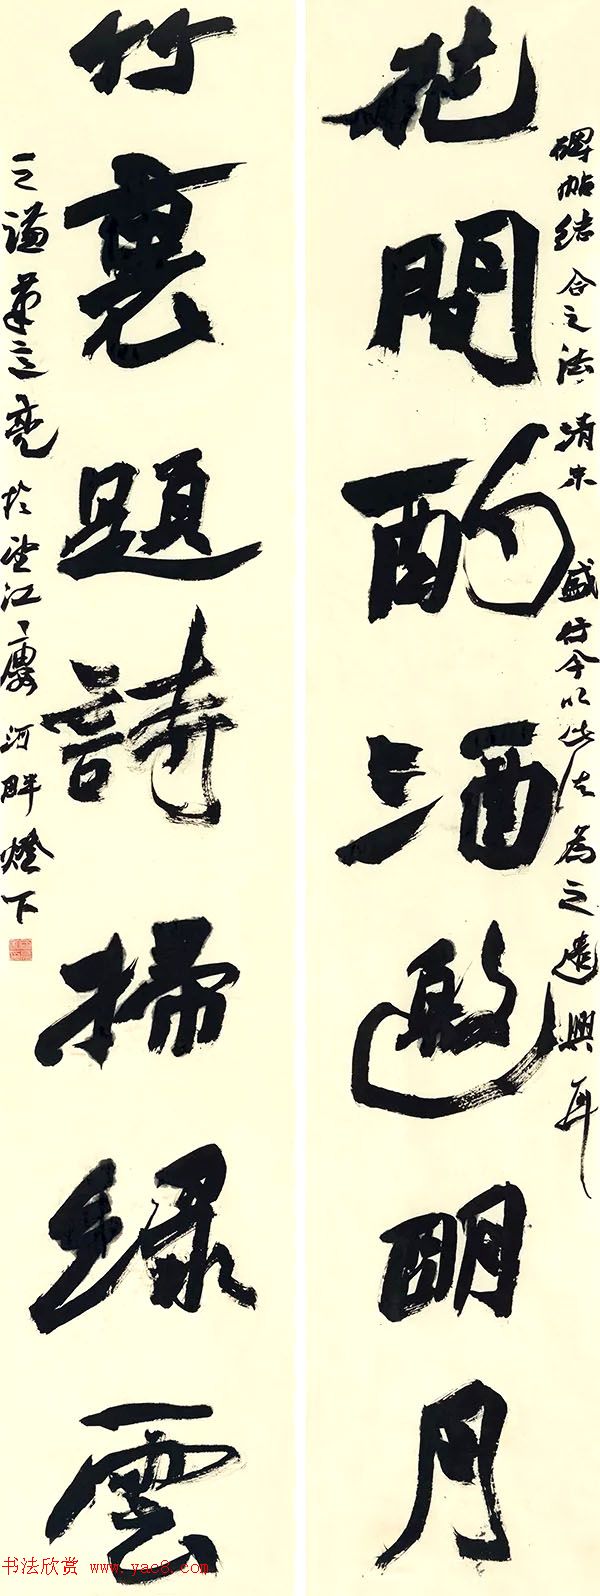 花間酌酒邀明月
碑帖結合之法清末盛行今以此法為之遣興耳
竹裏題詩掃綠雲
之謙葉立亮於望江廔河畔燈下
书法欣赏 www.yac8.com